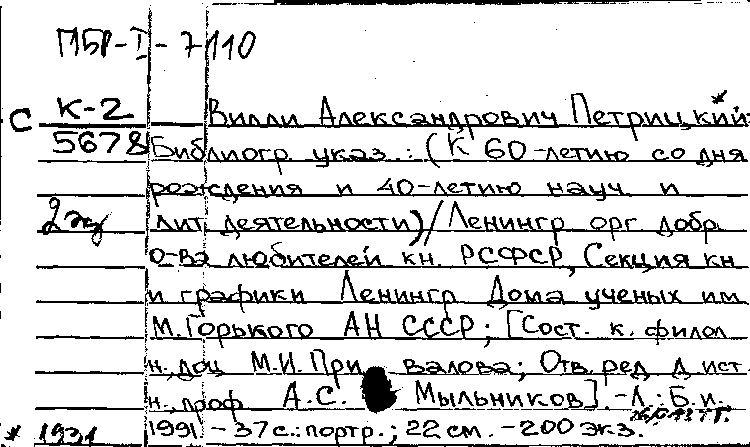 ПБР-I-7110
К-2 Вилли Александрович Петрицкий *
С 5678 Библиогр. указ.: (К 60-летию со дня
рождения и 40-летию науч. и
2 эк лит. деятельности) / Ленингр. орг. добр.
о-ва любителей кн. РСФСР, Секция кн.
и графики Ленингр. Дома ученых им.
М. Горького АН СССР; [Сост. к. филол.
н., доц. М.И. Привалова; Отв. ред. д. ист.
н., проф. А.С. Мыльников]. -Л.: Б.и.
* 1931 1991 - 37 с.: портр.; 22 см. - 200 экз.